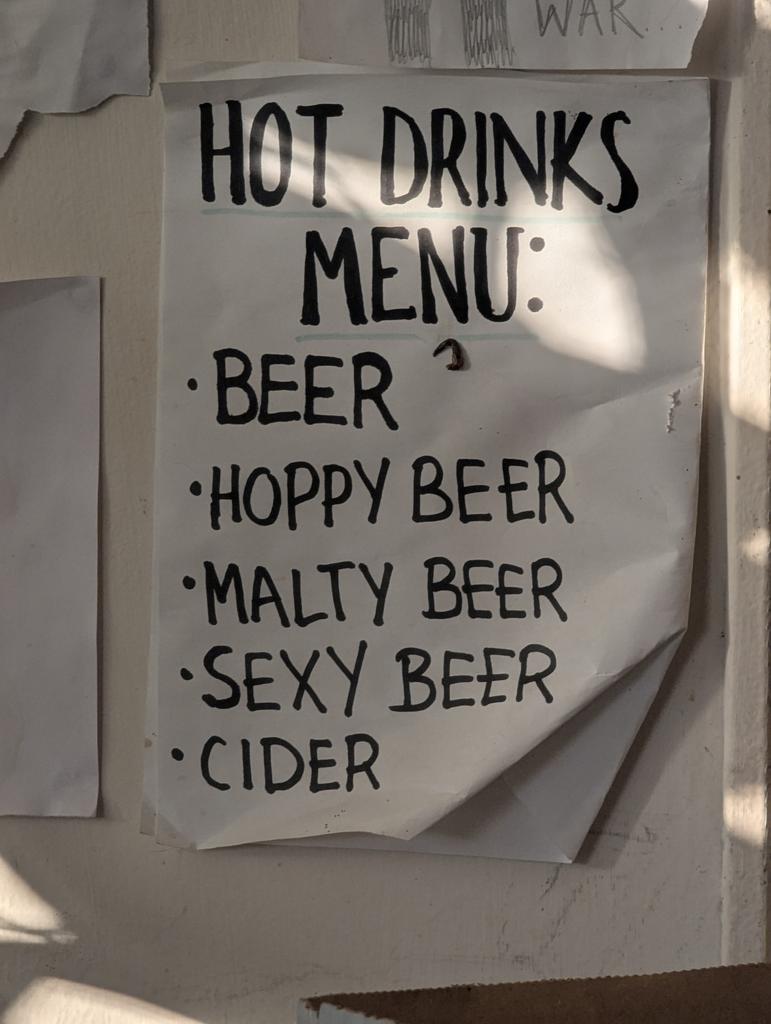 WAR...
HOT DRINKS
MENU:
· BEER
· HOPPY BEER
· MALTY BEER
· SEXY BEER
· CIDER